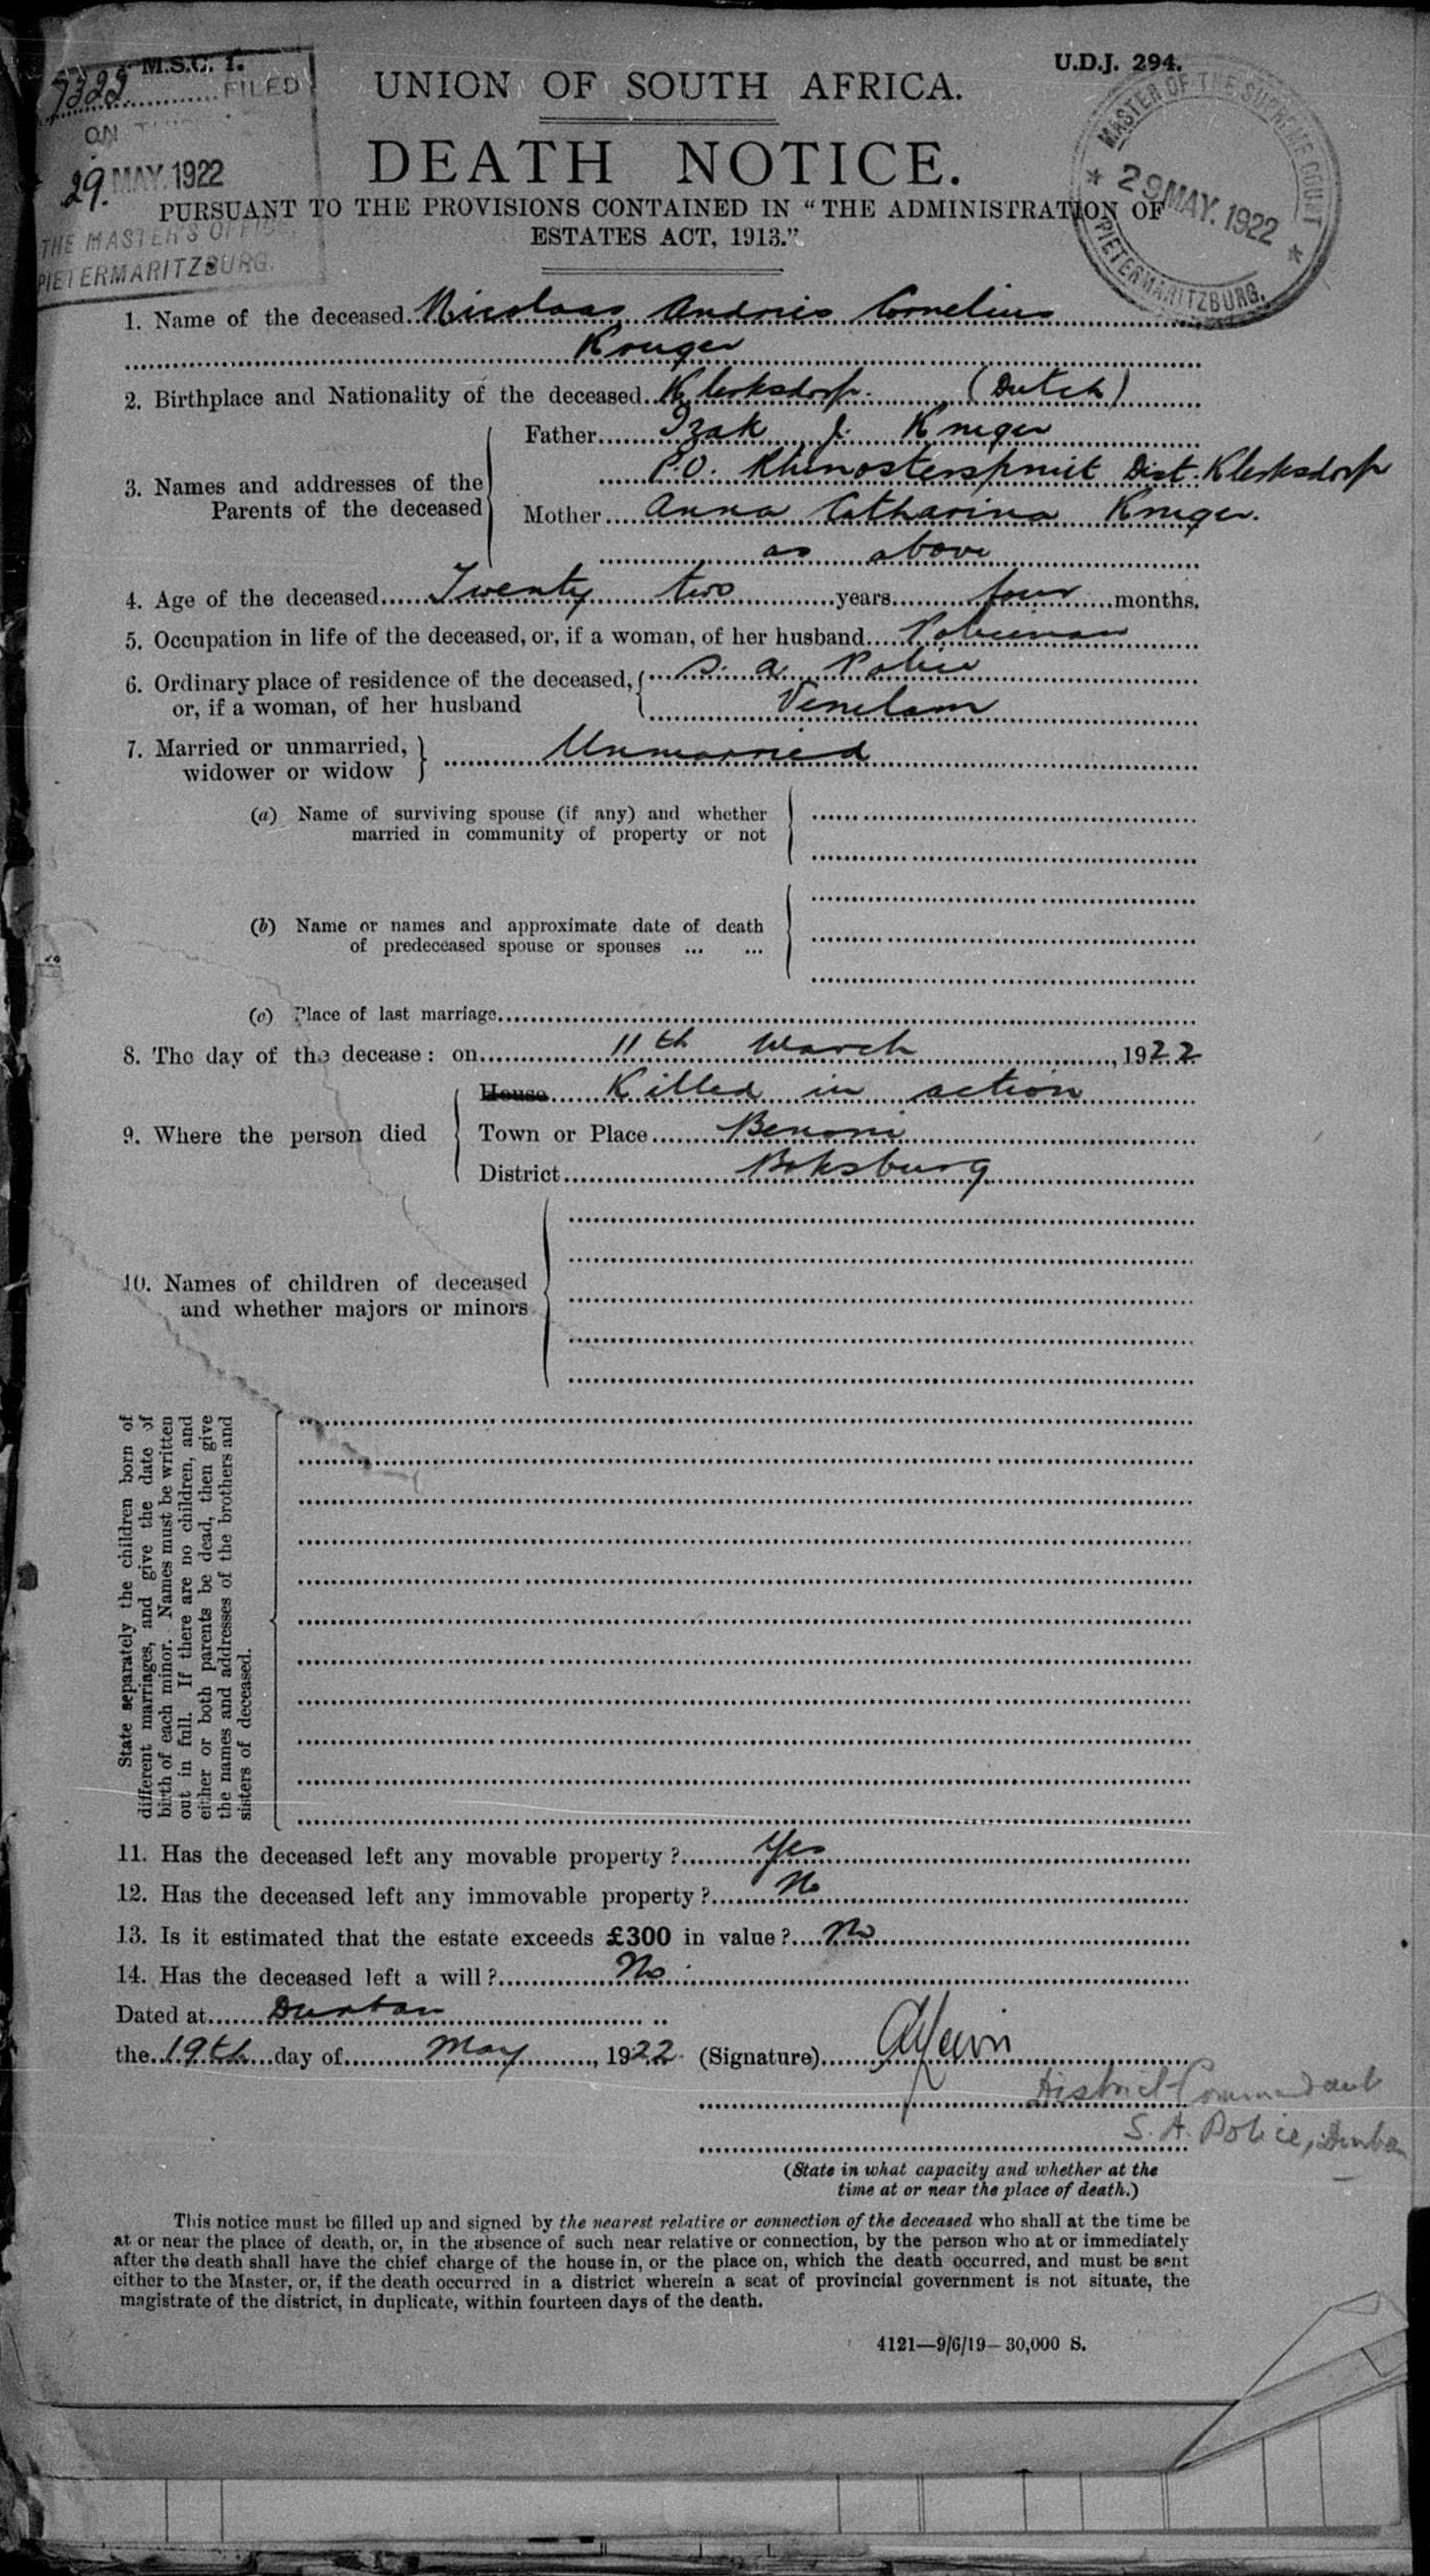 M.S.C. 1.
U.D.J. 294.
7323 FILED
ON
29. MAY. 1922
THE MASTER'S OFFICE
PIETERMARITZBURG.
MASTER OF THE SUPREME COURT
* 29 MAY. 1922 *
PIETERMARITZBURG.
UNION OF SOUTH AFRICA.
DEATH NOTICE.
PURSUANT TO THE PROVISIONS CONTAINED IN “THE ADMINISTRATION OF
ESTATES ACT, 1913.”
1. Name of the deceased Nicolaas Andries Cornelius
Kruger
2. Birthplace and Nationality of the deceased Klerksdorp. (Dutch)
3. Names and addresses of the Parents of the deceased
Father Izak J. Kruger
P.O. Rhinosterspruit Dist. Klerksdorp
Mother Anna Catharina Kruger.
as above
4. Age of the deceased Twenty two years four months.
5. Occupation in life of the deceased, or, if a woman, of her husband Policeman
6. Ordinary place of residence of the deceased, S. A. Police
or, if a woman, of her husband Verulam
7. Married or unmarried, widower or widow Unmarried
(a) Name of surviving spouse (if any) and whether
married in community of property or not
(b) Name or names and approximate date of death
of predeceased spouse or spouses ... ...
(c) Place of last marriage
8. The day of the decease: on 11th March, 1922
9. Where the person died
House Killed in action
Town or Place Benoni
District Boksburg
10. Names of children of deceased
and whether majors or minors
State separately the children born of
different marriages, and give the date of
birth of each minor. Names must be written
out in full. If there are no children, and
either or both parents be dead, then give
the names and addresses of the brothers and
sisters of deceased.
11. Has the deceased left any movable property? Yes
12. Has the deceased left any immovable property? No
13. Is it estimated that the estate exceeds £300 in value? No
14. Has the deceased left a will? No
Dated at Durban
the 19th day of May, 1922 (Signature)
District Commandant
S. A. Police, Durban
(State in what capacity and whether at the
time at or near the place of death.)
This notice must be filled up and signed by the nearest relative or connection of the deceased who shall at the time be
at or near the place of death, or, in the absence of such near relative or connection, by the person who at or immediately
after the death shall have the chief charge of the house in, or the place on, which the death occurred, and must be sent
either to the Master, or, if the death occurred in a district wherein a seat of provincial government is not situate, the
magistrate of the district, in duplicate, within fourteen days of the death.
4121—9/6/19—30,000 S.